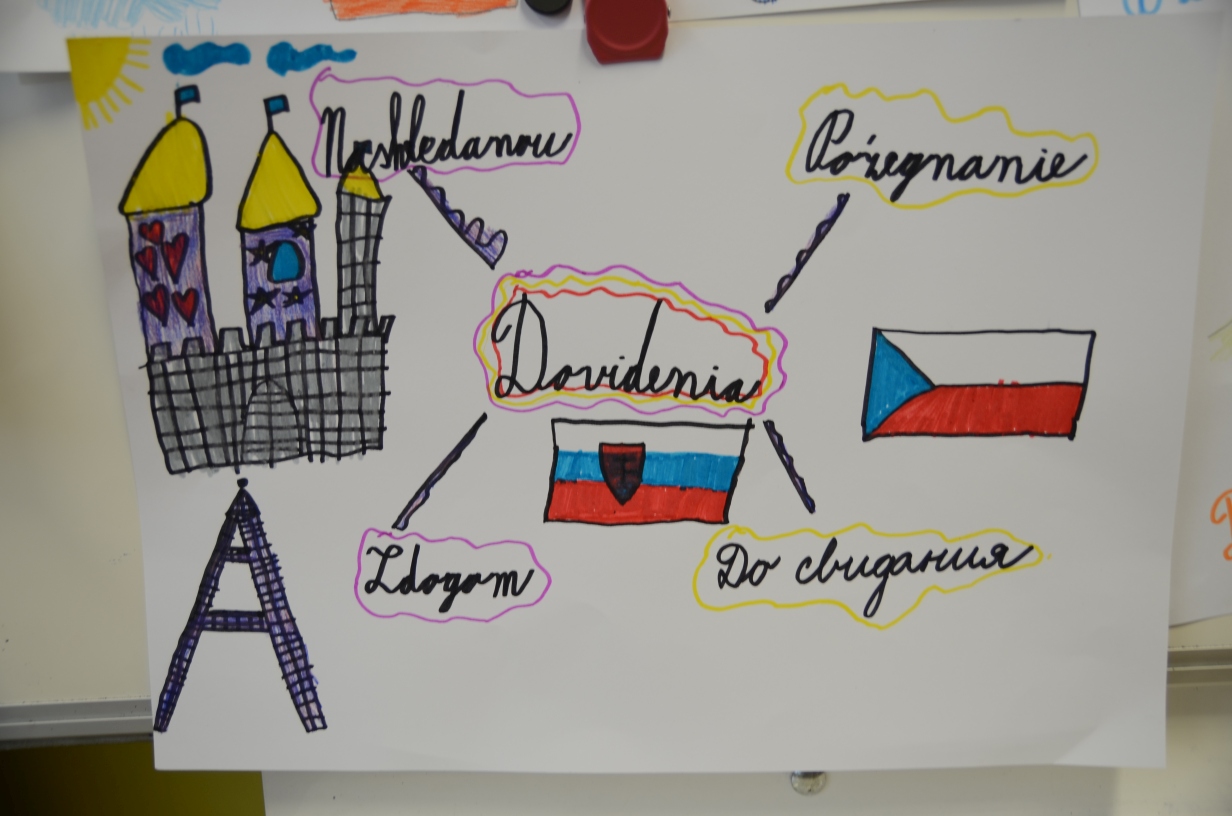 Nashledanou
Pożegnanie
Dovidenia
Zdogom
До свидания